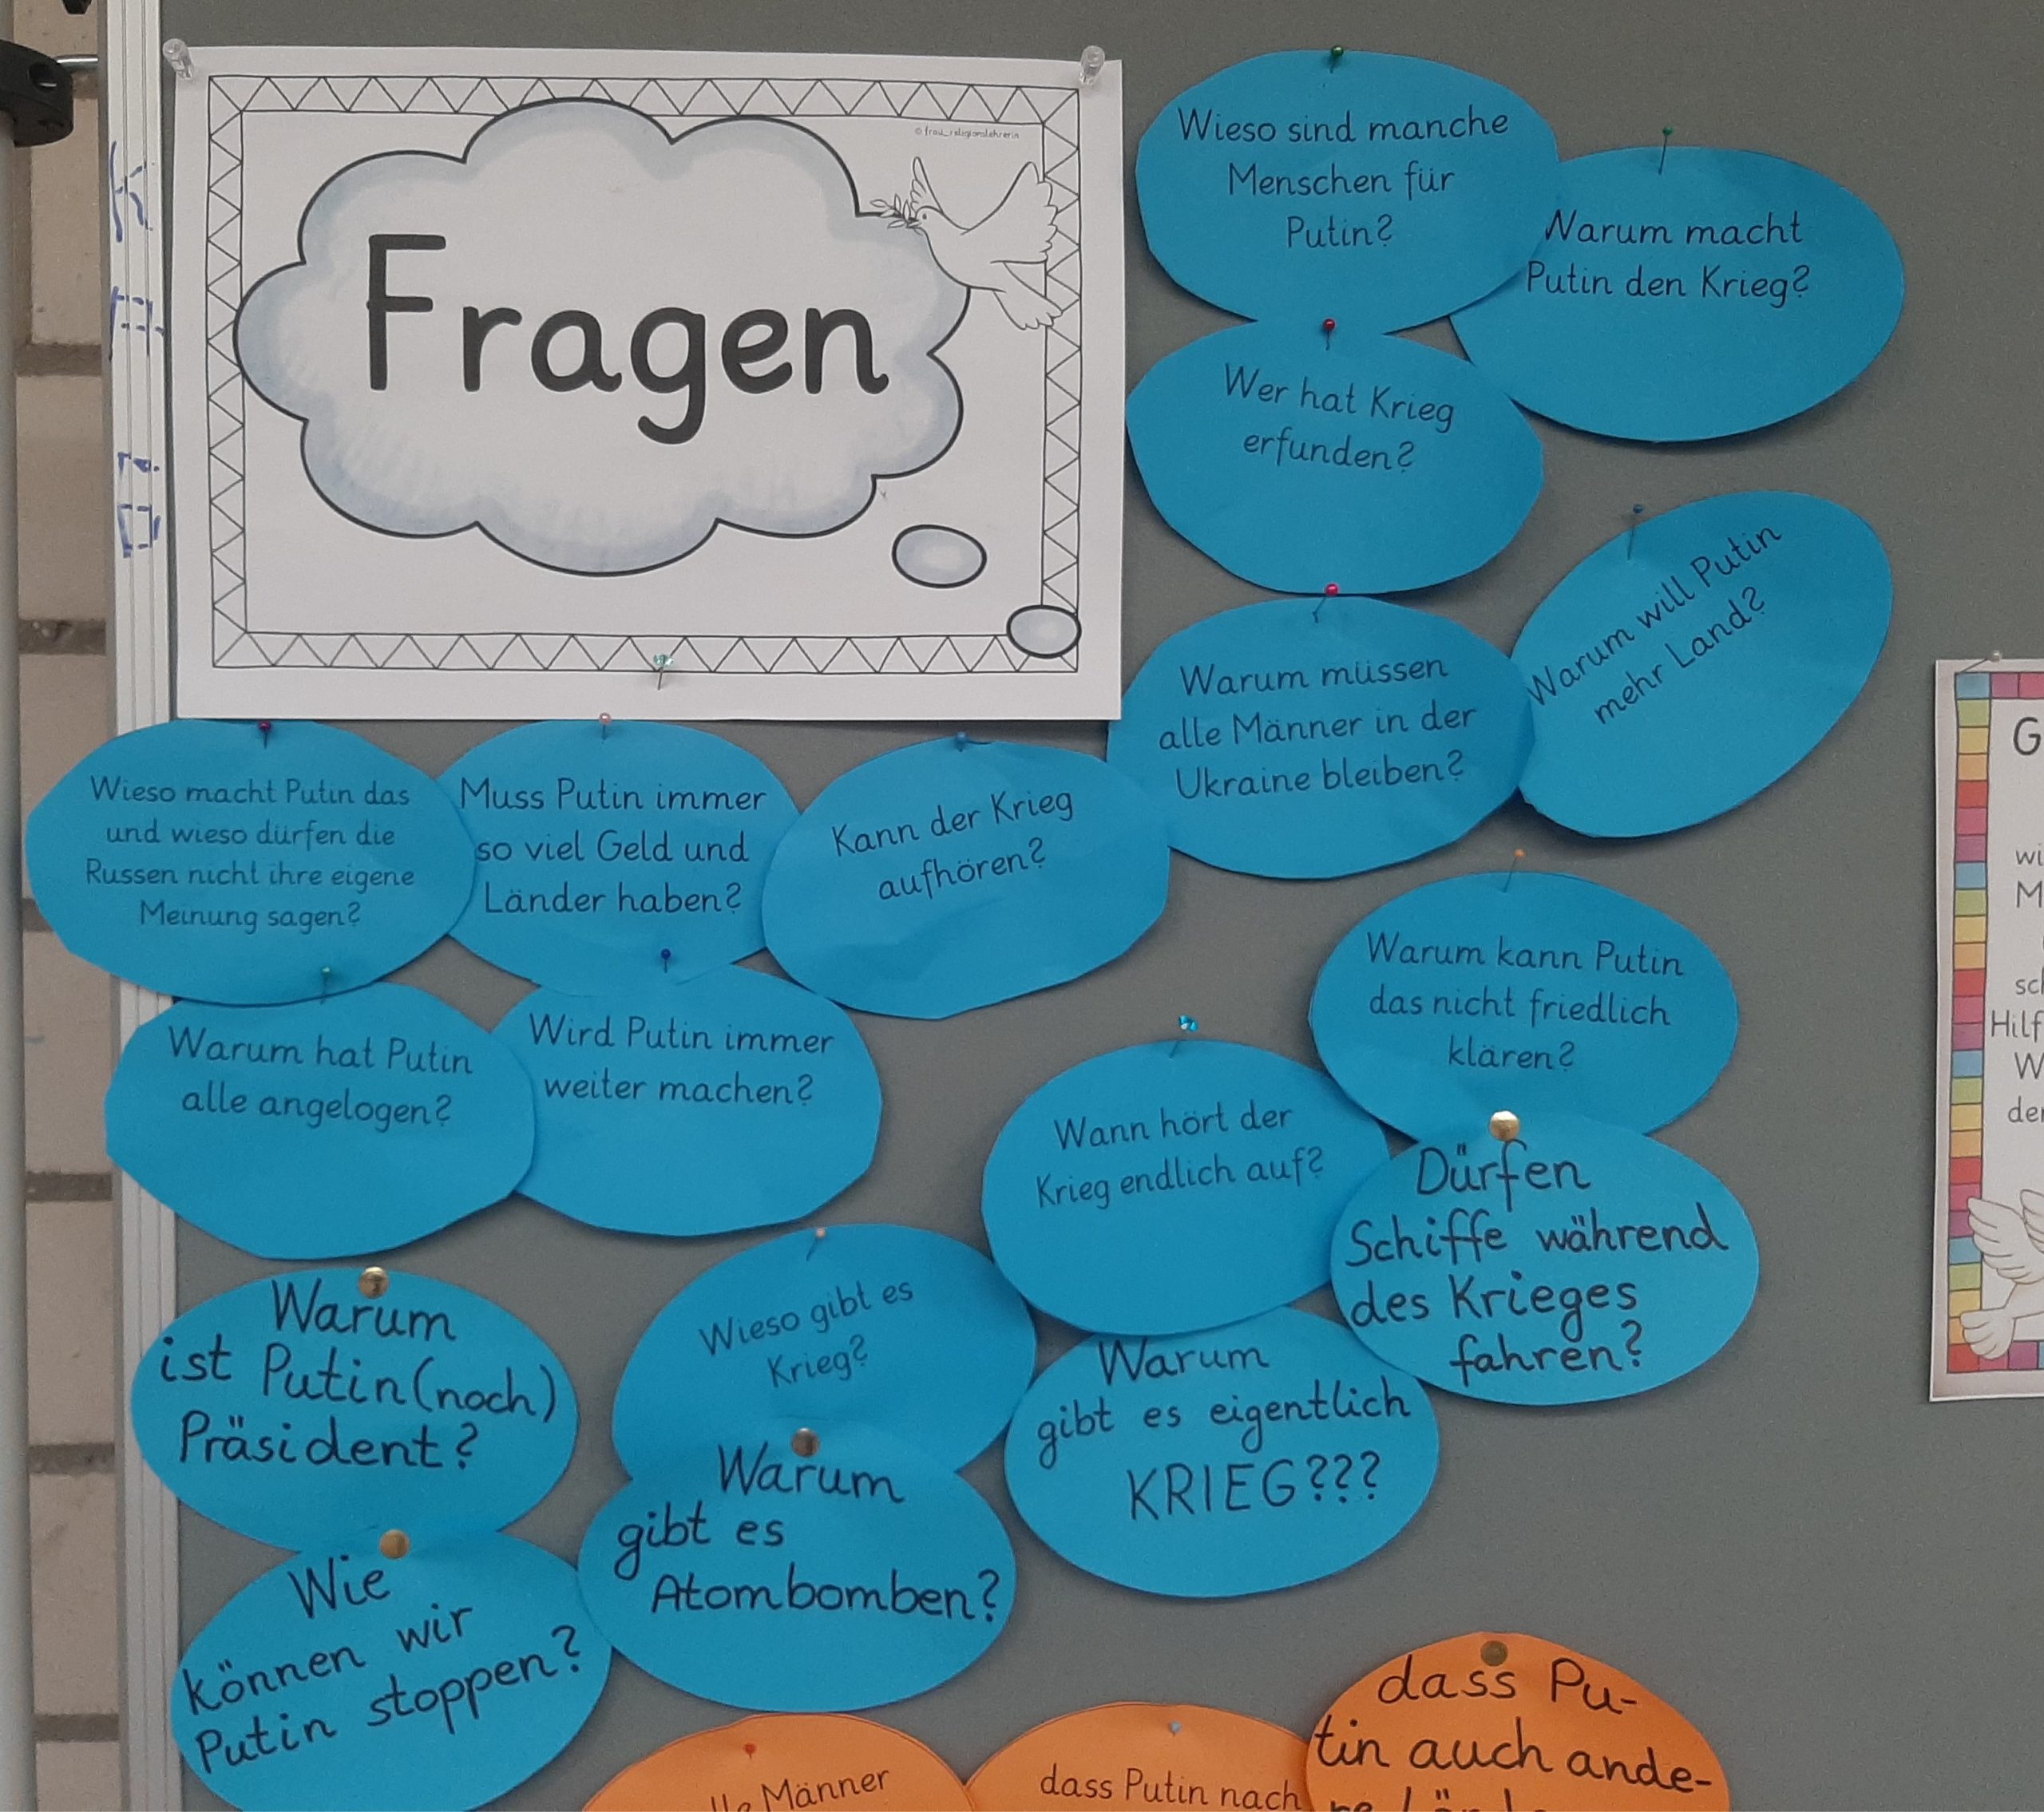 © frau_religionslehrerin
Fragen
Wieso sind manche
Menschen für
Putin?
Warum macht
Putin den Krieg?
Wer hat Krieg
erfunden?
Warum will Putin
mehr Land?
Warum müssen
alle Männer in der
Ukraine bleiben?
Wieso macht Putin das
und wieso dürfen die
Russen nicht ihre eigene
Meinung sagen?
Muss Putin immer
so viel Geld und
Länder haben?
Kann der Krieg
aufhören?
Warum kann Putin
das nicht friedlich
klären?
Warum hat Putin
alle angelogen?
Wird Putin immer
weiter machen?
Wann hört der
Krieg endlich auf?
Dürfen
Schiffe während
des Krieges
fahren?
Warum
ist Putin (noch)
Präsident?
Wieso gibt es
Krieg?
Warum
gibt es eigentlich
KRIEG???
Warum
gibt es
Atombomben?
Wie
können wir
Putin stoppen?
Männer
dass Putin nach
dass Pu-
tin auch ande-
G
wi
M
sc
Hilf
W
der